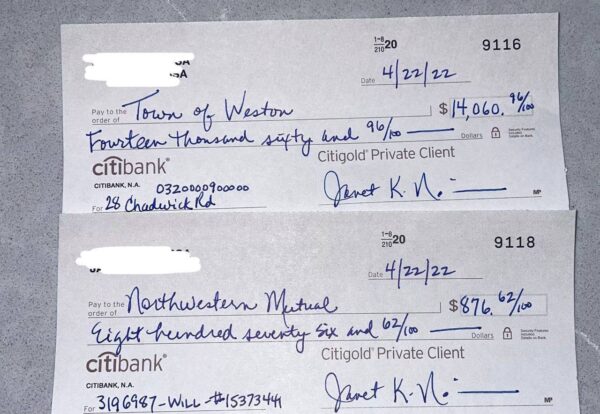 1-8
210 20
9116
Date 4/22/22
Pay to the order of Town of Weston $14,060. 96/100
Fourteen thousand sixty and 96/100 Dollars
Security Features Included. Details on Back.
citibank® Citigold® Private Client
CITIBANK, N.A. 0320000900000
For 28 Chadwick Rd Janet K. N. MP
1-8
210 20
9118
Date 4/22/22
Pay to the order of Northwestern Mutual $876. 62/100
Eight hundred seventy six and 62/100 Dollars
Security Features Included. Details on Back.
citibank® Citigold® Private Client
CITIBANK, N.A.
For 3196987-WILL-#1537344 Janet K. N. MP